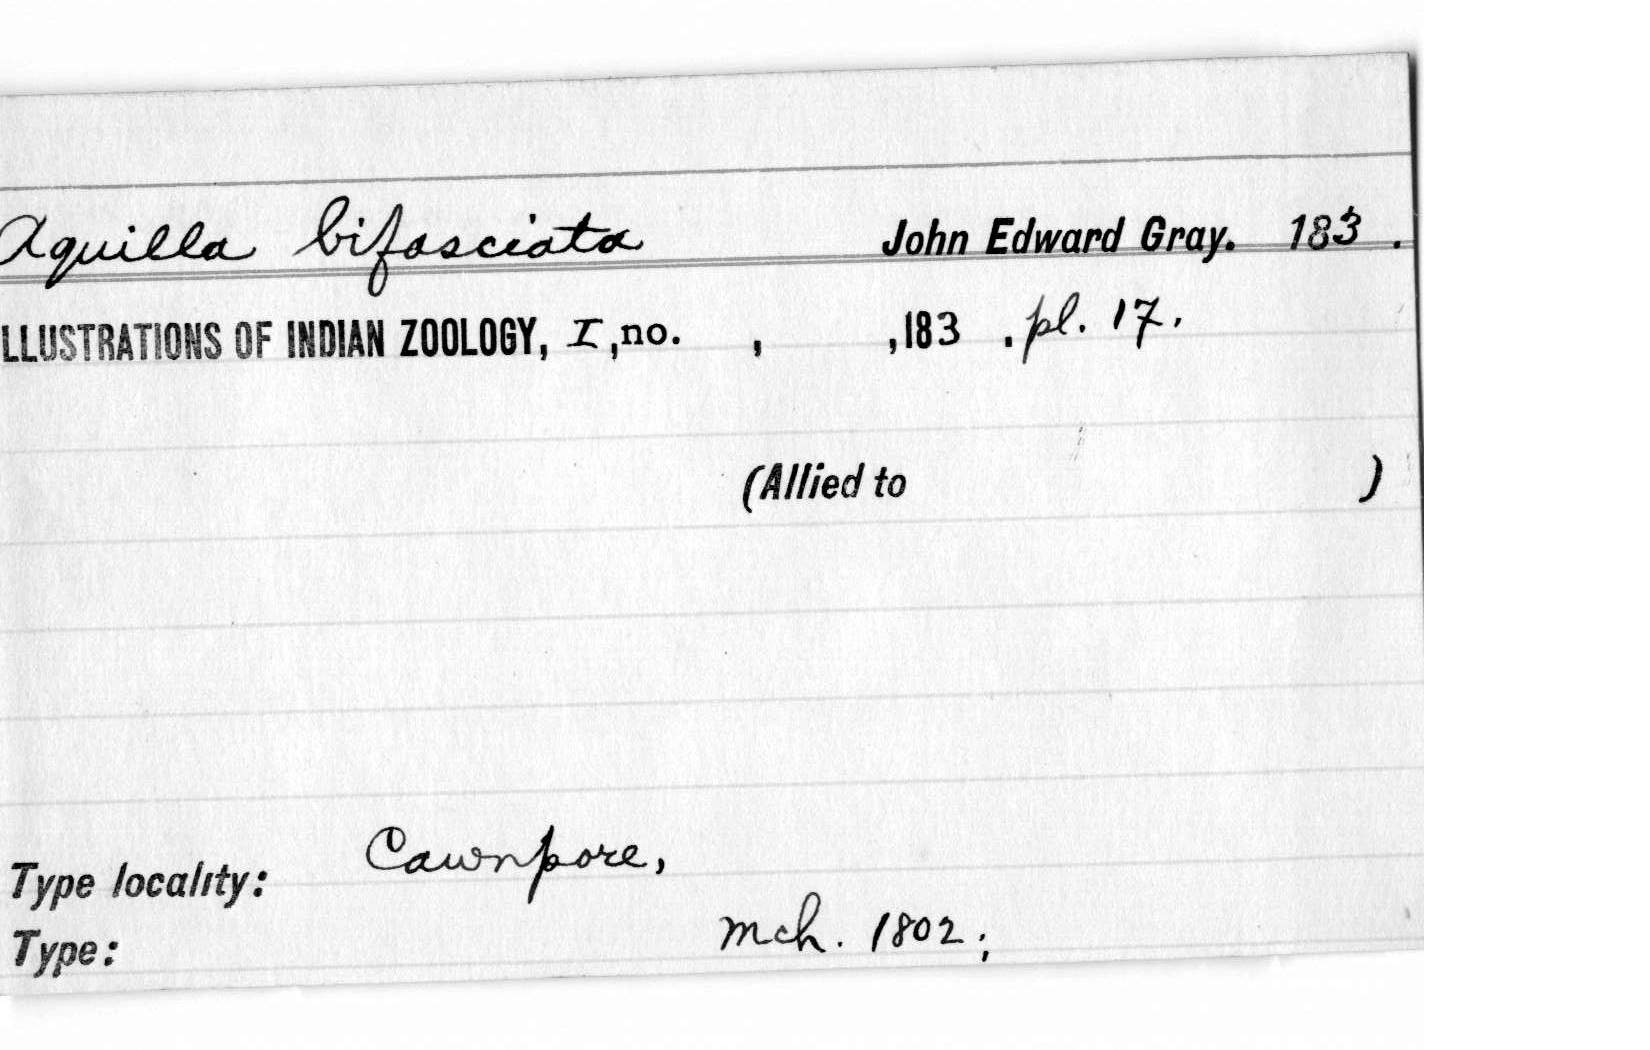 Aquilla bifasciata John Edward Gray. 183 .
LLUSTRATIONS OF INDIAN ZOOLOGY, I,no. , ,183 . pl. 17.
(Allied to )
Type locality: Cawnpore,
Type: Mch. 1802.;